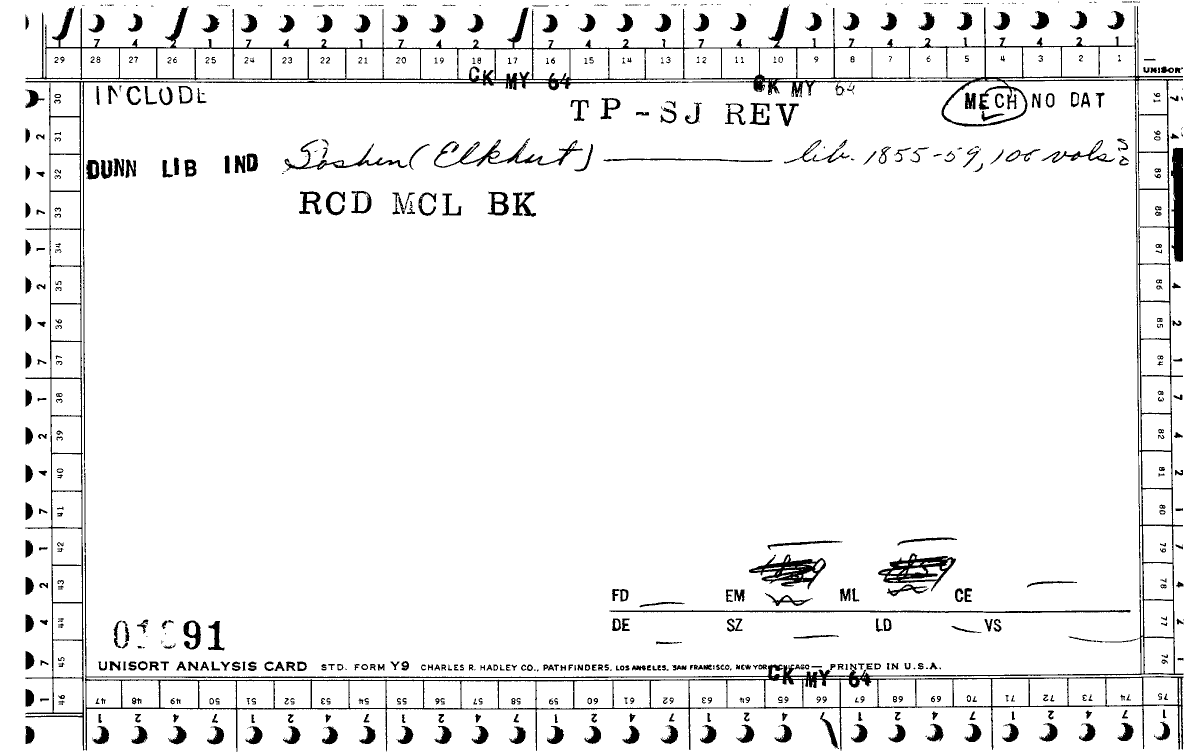 7 4 2 1 7 4 2 1 7 4 2 1 7 4 2 1 7 4 2 1 7 4 2 1 7 4 2 1
29 28 27 26 25 24 23 22 21 20 19 18 17 16 15 14 13 12 11 10 9 8 7 6 5 4 3 2 1
CK MY 64 CK MY 64 UNISORT
INCLUDE MECH NO DAT
TP-SJ REV
DUNN LIB IND Goshen (Elkhart) — lib. 1855-59, 106 vols
RCD MCL BK
30 31 32 33 34 35 36 37 38 39 40 41 42 43 44 45 46
91 90 89 88 87 86 85 84 83 82 81 80 79 78 77 76 75
1859 1859
FD EM ML CE
DE SZ LD VS
91
UNISORT ANALYSIS CARD STD. FORM Y9 CHARLES R. HADLEY CO., PATHFINDERS, LOS ANGELES, SAN FRANCISCO, NEW YORK, CHICAGO — PRINTED IN U.S.A.
CK MY 64
47 48 49 50 51 52 53 54 55 56 57 58 59 60 61 62 63 64 65 66 67 68 69 70 71 72 73 74
1 2 4 7 1 2 4 7 1 2 4 7 1 2 4 7 1 2 4 7 1 2 4 7 1